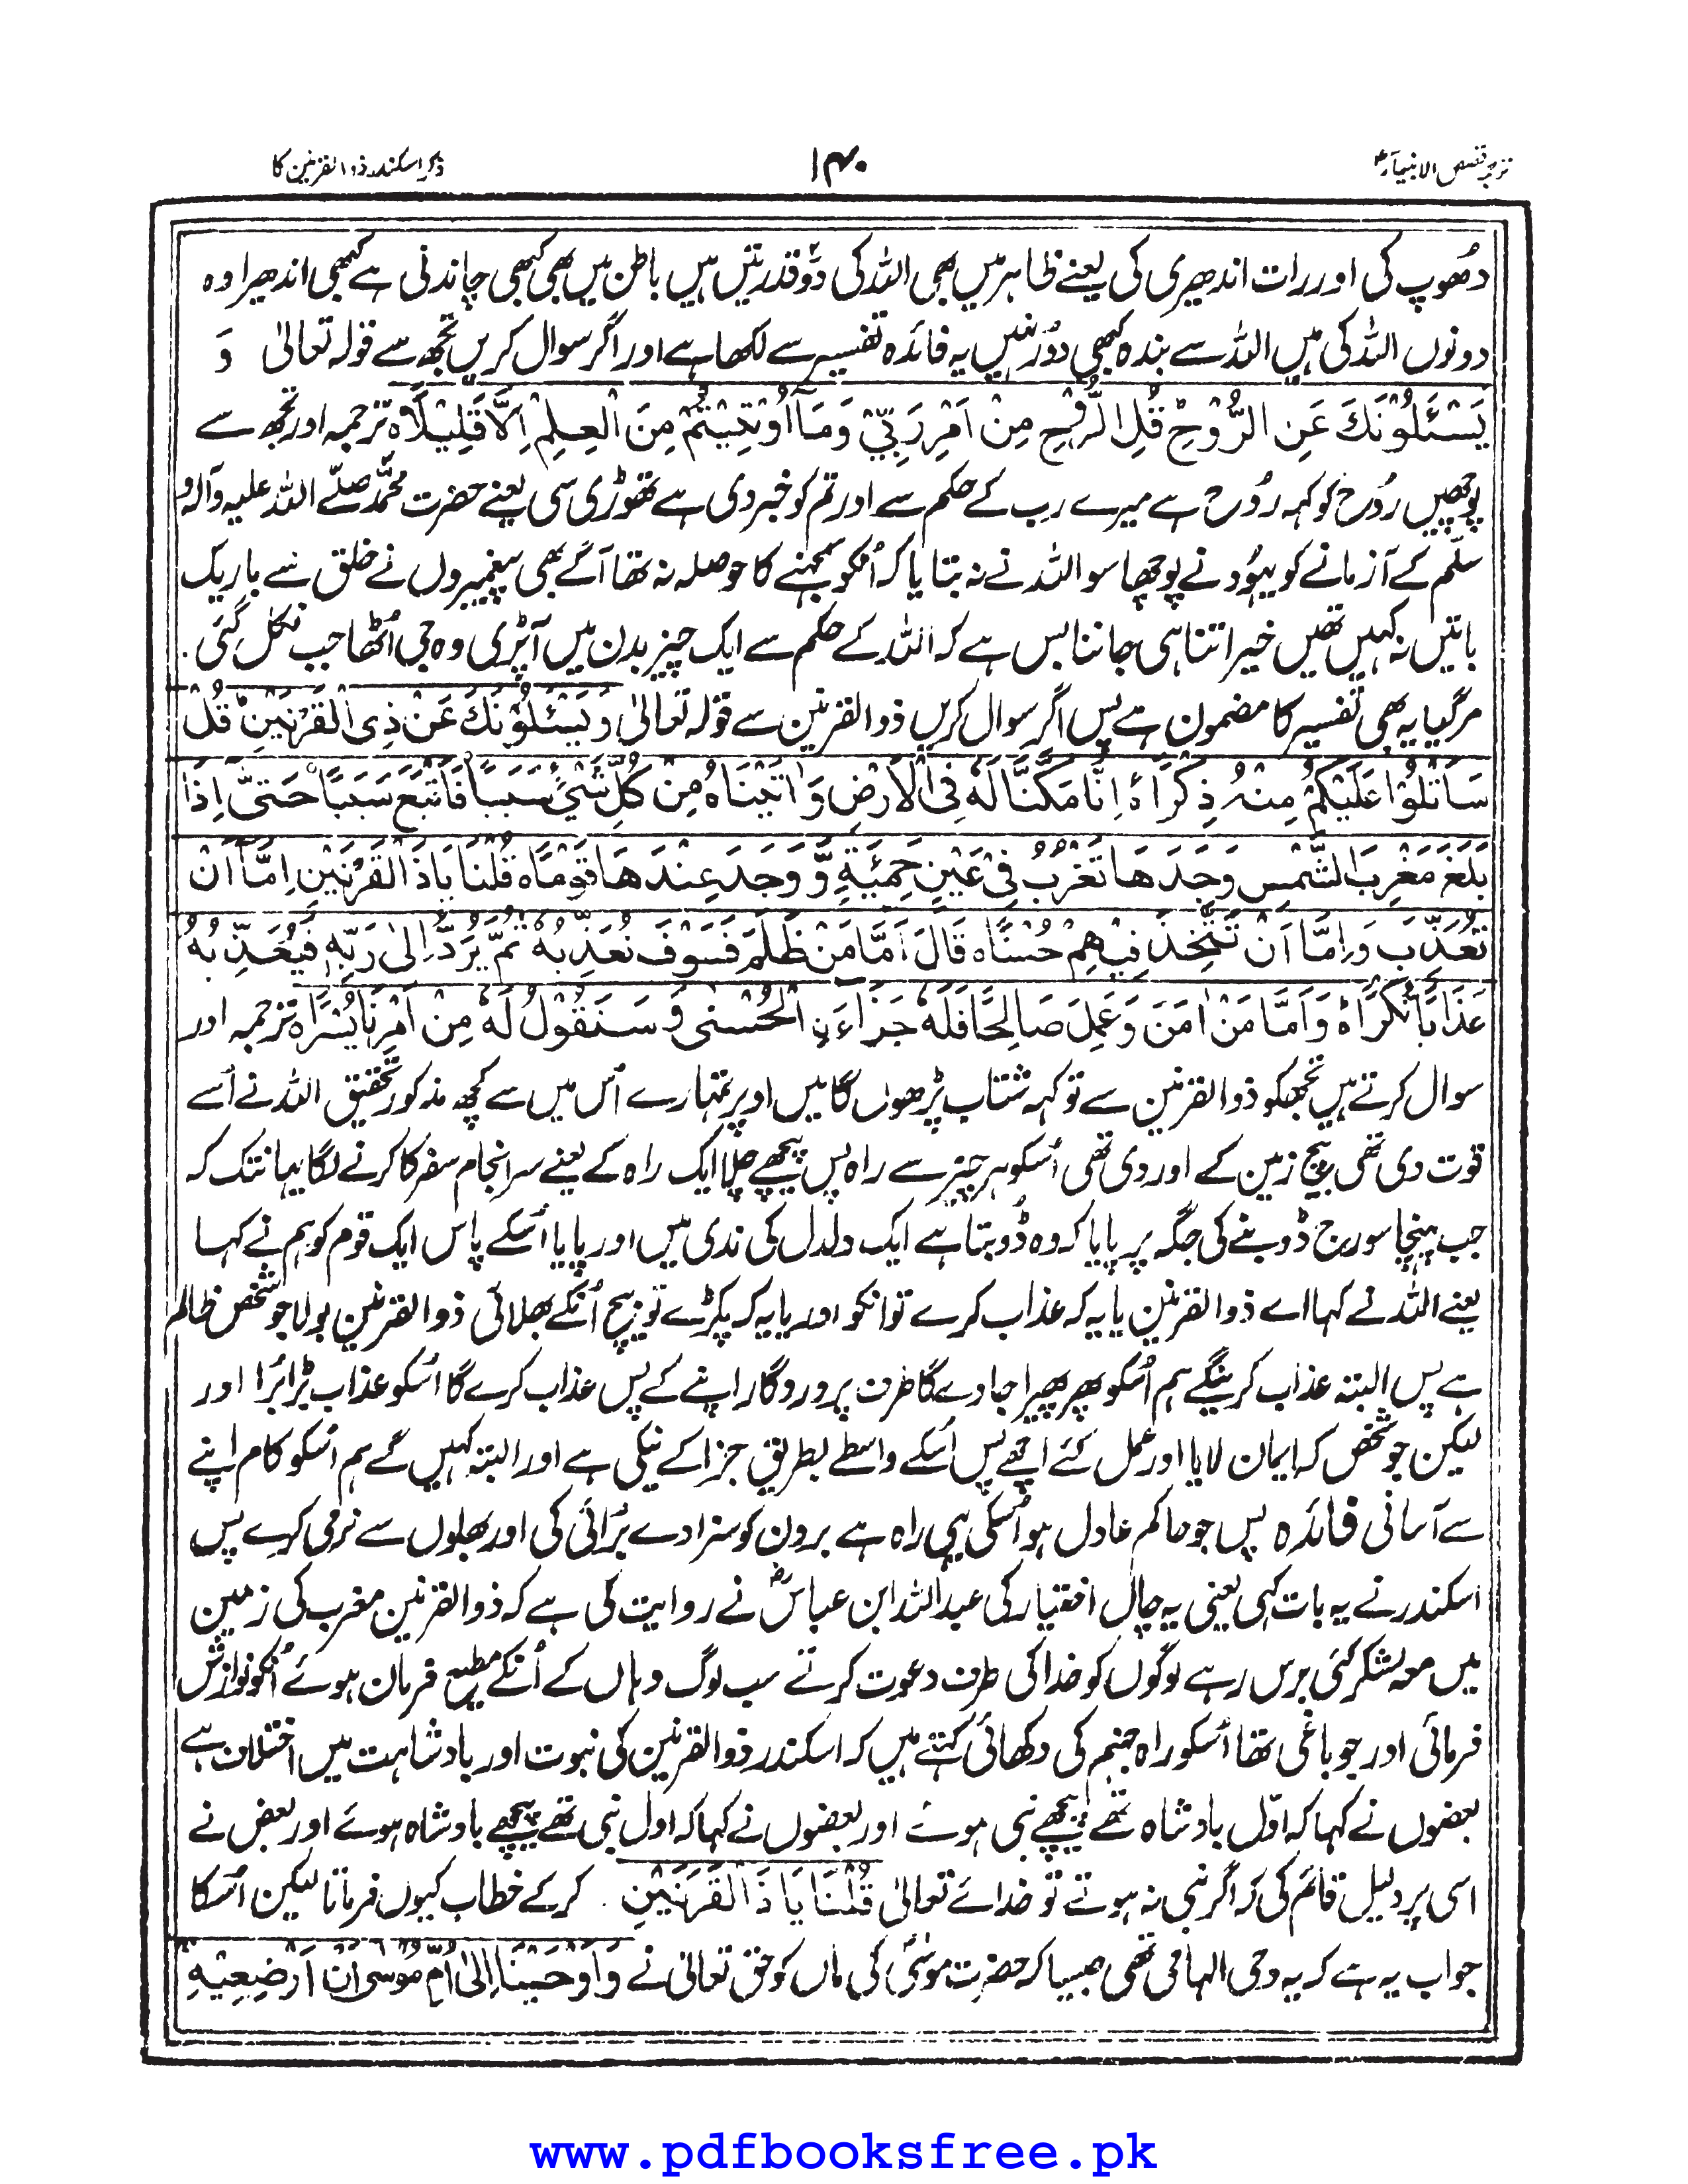 ترجمہ قصص الانبیاء
۱۴۰
ذکر اسکندر ذوالقرنین کا
دھوپ کی اور رات اندھیری کی یعنے ظاہر میں بھی اللہ کی دو قدرتیں ہیں باطن میں بھی کبھی چاندنی ہے کبھی اندھیرا وہ
دونوں اللہ کی ہیں اللہ سے بندہ کبھی دُور نہیں یہ فائدہ تفسیر سے لکھا ہے اور اگر سوال کریں تجھ سے قولہ تعالیٰ وَ
یَسْئَلُوْنَكَ عَنِ الرُّوْحِ قُلِ الرُّوْحُ مِنْ اَمْرِ رَبِّیْ وَمَآ اُوْتِیْتُمْ مِنَ الْعِلْمِ اِلَّا قَلِیْلًا ہ ترجمہ اور تجھ سے
پوچھیں رُوح کو کہہ رُوح ہے میرے رب کے حکم سے اور تم کو خبر دی ہے تھوڑی سی یعنے حضرت محمّد صلّے اللہ علیہ وآلہ و
سلّم کے آزمانے کو یہود نے پوچھا سو اللہ نے نہ بتایا کہ اُنکو سمجھنے کا حوصلہ نہ تھا آگے بھی پیغمبروں نے خلق سے باریک
باتیں نہ کہیں تھیں خیر اتنا ہی جاننا بس ہے کہ اللہ کے حکم سے ایک چیز بدن میں آپڑی وہ جی اُٹھا جب نکل گئی .
مرگیا یہ بھی تفسیر کا مضمون ہے پس اگر سوال کریں ذوالقرنین سے قولہ تعالیٰ وَیَسْئَلُوْنَكَ عَنْ ذِی الْقَرْنَیْنِ قُلْ
سَاَتْلُوْا عَلَیْكُمْ مِنْهُ ذِكْرًا ہ اِنَّا مَكَّنَّا لَهٗ فِی الْاَرْضِ وَاٰتَیْنَاهُ مِنْ كُلِّ شَیْءٍ سَبَبًا فَاَتْبَعَ سَبَبًا حَتّٰی اِذَا
بَلَغَ مَغْرِبَ الشَّمْسِ وَجَدَهَا تَغْرُبُ فِیْ عَیْنٍ حَمِئَةٍ وَّوَجَدَ عِنْدَهَا قَوْمًا ہ قُلْنَا یَاذَا الْقَرْنَیْنِ اِمَّا اَنْ
تُعَذِّبَ وَاِمَّا اَنْ تَتَّخِذَ فِیْهِمْ حُسْنًا ہ قَالَ اَمَّا مَنْ ظَلَمَ فَسَوْفَ نُعَذِّبُهٗ ثُمَّ یُرَدُّ اِلٰی رَبِّهٖ فَیُعَذِّبُهٗ
عَذَابًا نُّكْرًا ہ وَاَمَّا مَنْ اٰمَنَ وَعَمِلَ صَالِحًا فَلَهٗ جَزَآءَنِ الْحُسْنٰی وَ سَنَقُوْلُ لَهٗ مِنْ اَمْرِنَا یُسْرًا ہ ترجمہ اور
سوال کرتے ہیں تجھکو ذوالقرنین سے تو کہہ شتاب پڑھوں گا میں اوپر تمہارے اُس میں سے کچھ مذکور تحقیق اللہ نے اُسے
قوت دی تھی بیچ زمین کے اور دی تھی اُسکو ہر چیز سے راہ پس پیچھے چلا ایک راہ کے یعنے سرانجام سفر کا کرنے لگا یہانتک کہ
جب پہنچا سورج ڈوبنے کی جگہ پر پایا کہ وہ ڈوبتا ہے ایک دلدل کی ندی میں اور پایا اُسکے پاس ایک قوم کو ہم نے کہا
یعنے اللہ نے کہا اے ذوالقرنین یا یہ کہ عذاب کرے تو انکو اور یا یہ کہ پکڑے تو بیچ اُنکے بھلائی ذوالقرنین بولا جو شخص ظالم
ہے پس البتہ عذاب کرینگے ہم اُسکو پھر پھیرا جاوے گا طرف پروردگار اپنے کے پس عذاب کرے گا اُسکو عذاب بڑا بُرا اور
لیکن جو شخص کہ ایمان لایا اور عمل کئے اچھے پس اُسکے واسطے بطریق جزا کے نیکی ہے اور البتہ کہیں گے ہم اُسکو کام اپنے
سے آسانی فائدہ پس جو حاکم عادل ہو اُسکی یہی راہ ہے برون کو سزا دے بُرائی کی اور بھلوں سے نرمی کرے پس
اسکندر نے یہ بات کہی یعنی یہ چال اختیار کی عبداللہ ابن عباسؓ نے روایت کی ہے کہ ذوالقرنین مغرب کی زمین
میں معہ لشکر کئی برس رہے لوگوں کو خدا کی طرف دعوت کرتے سب لوگ وہاں کے اُنکے مطیع فرمان ہوئے اُنکو نوازش
فرمائی اور جو باغی تھا اُسکو راہ جہنم کی دکھائی کہتے ہیں کہ اسکندر ذوالقرنین کی نبوت اور بادشاہت میں اختلاف ہے
بعضوں نے کہا کہ اوّل بادشاہ تھے پیچھے نبی ہوئے اور بعضوں نے کہا کہ اول نبی تھے پیچھے بادشاہ ہوئے اور بعض نے
اسی پر دلیل قائم کی کہ اگر نبی نہ ہوتے تو خدائے تعالیٰ قُلْنَا یَا ذَا الْقَرْنَیْنِ . کرکے خطاب کیوں فرماتا لیکن اُسکا
جواب یہ ہے کہ یہ وحی الہامی تھی جیسا کہ حضرت موسٰیؑ کی ماں کو حق تعالیٰ نے وَاَوْحَیْنَا اِلٰی اُمِّ مُوْسٰی اَنْ اَرْضِعِیْهِ
www.pdfbooksfree.pk